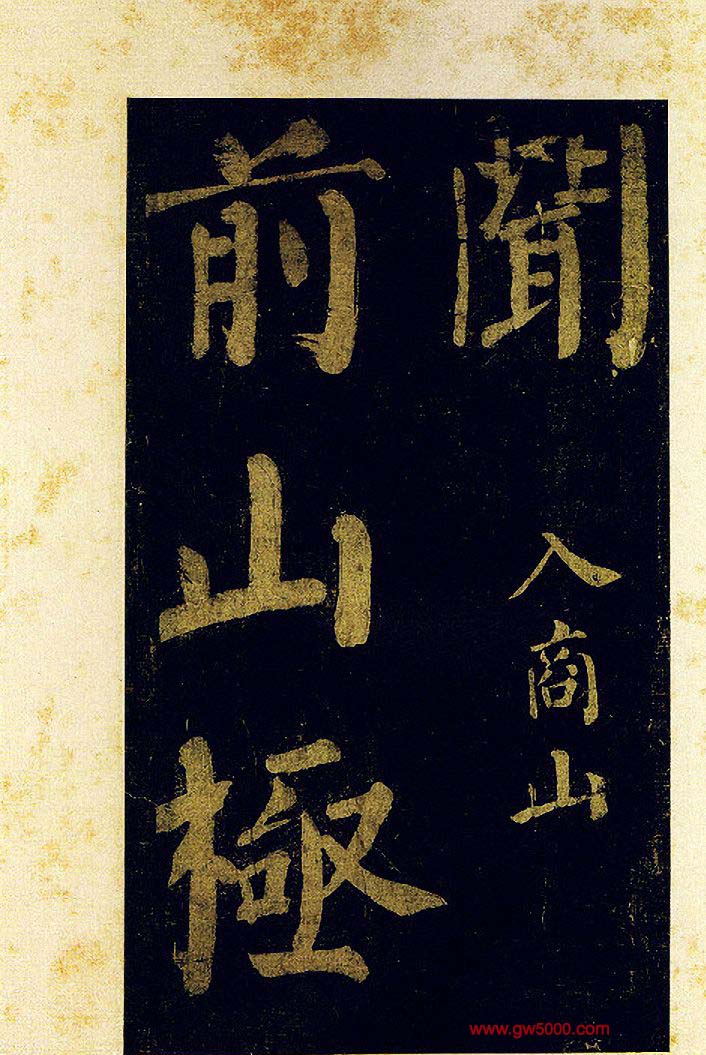 聞
入商山
前山極
www.gw5000.com